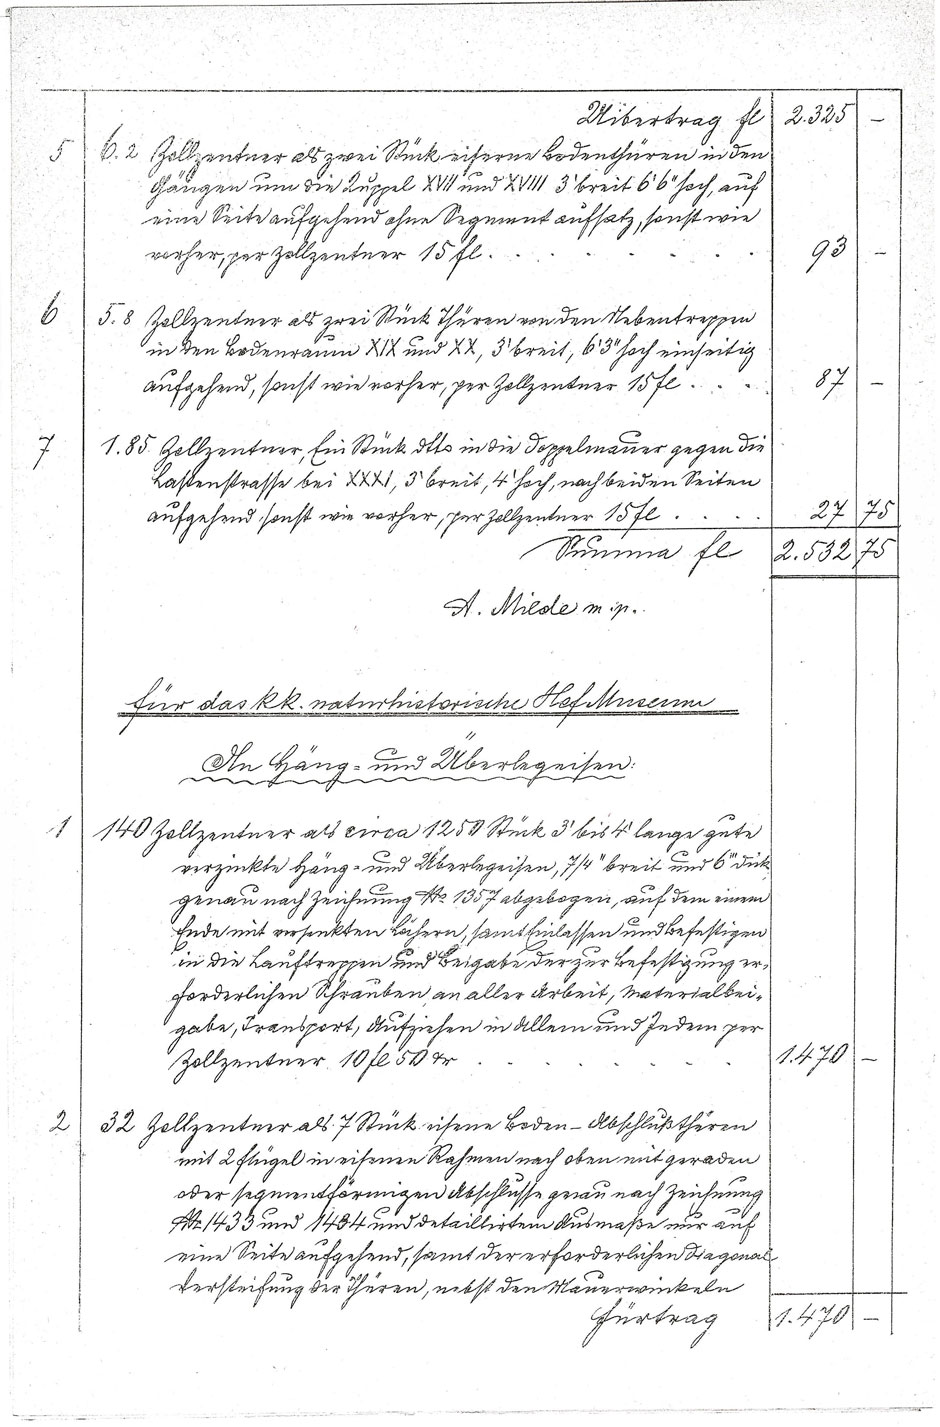 Uibertrag fl 2.325 –
5 6.2 Zollzentner als zwei Stück eiserne Bodenthüren in den
Gängen um die Kuppel XVII und XVIII 3' breit 6'6" hoch, auf
eine Seite aufgehend ohne Segment aufsatz, sonst wie
vorher, per Zollzentner 15 fl. . . . . . . . 93 –
6 5.8 Zollzentner als zwei Stück Thüren von den Nebentreppen
in den Bodenraum XIX und XX, 3' breit, 6'3" hoch einseitig
aufgehend, sonst wie vorher, per Zollzentner 15 fl . . . 87 –
7 1.85 Zollzentner, Ein Stück dtto in die Doppelmauer gegen die
Lastenstrasse bei XXXI, 3' breit, 4' hoch, nach beiden Seiten
aufgehend sonst wie vorher, per Zollzentner 15 fl . . . . 27 75
Summa fl 2.532 75
A. Milde m.p.
für das kk. naturhistorische Hof Museum
An Häng- und Überlegeisen:
1 140 Zollzentner als circa 1250 Stück 3' bis 4' lange gute
verzinkte Häng- und Überlegeisen, 7/4" breit und 6''' dick
genau nach Zeichnung No 1357 abgebogen, auf dem einem
Ende mit versenkten Löchern, samt Einlassen und Befestigen
in die Lauftreppen und Beigabe der zur Befestigung er-
forderlichen Schrauben an aller Arbeit, Materialbei-
gabe, Transport, Aufziehen in Allem und Jedem per
Zollzentner 10 fl 50 kr . . . . . . 1.470 –
2 32 Zollzentner als 7 Stück eisene Boden- Abschlußthüren
mit 2 flügel in eisenen Rahmen nach oben mit geraden
oder segmentförmigen Abschlusse genau nach Zeichnung
No 1433 und 1434 und detaillirtem Ausmaße nur auf
eine Seite aufgehend, samt der erforderlichen Diagonal
Versteifung der Thüren, nebst den Mauerwinkeln
Fürtrag 1.470 –